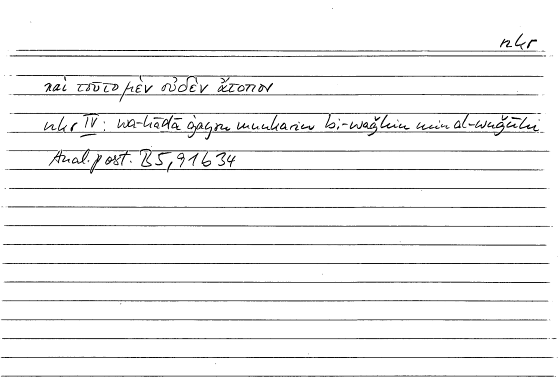 nkr
καὶ τοῦτο μὲν οὐδὲν ἄτοπον
nkr IV: wa-hāḏā ġayru munkarin bi-waǧhin min al-wuǧūhi
Anal. post. B 5, 91 b 34